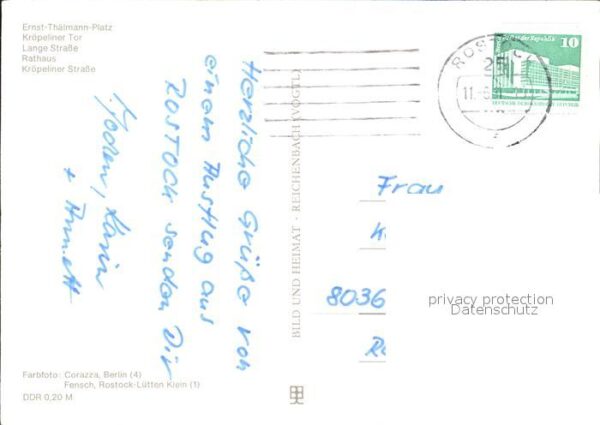 Ernst-Thälmann-Platz
Kröpeliner Tor
Lange Straße
Rathaus
Kröpeliner Straße
Herzliche Grüße von
einem Ausflug aus
ROSTOCK senden Dir
Karin
+ Annett
BILD UND HEIMAT · REICHENBACH (VOGTL)
ROSTOCK
25
11.
der Republik
10
Frau
K
8036
R
privacy protection
Datenschutz
Farbfoto: Corazza, Berlin (4)
Fensch, Rostock-Lütten Klein (1)
DDR 0,20 M